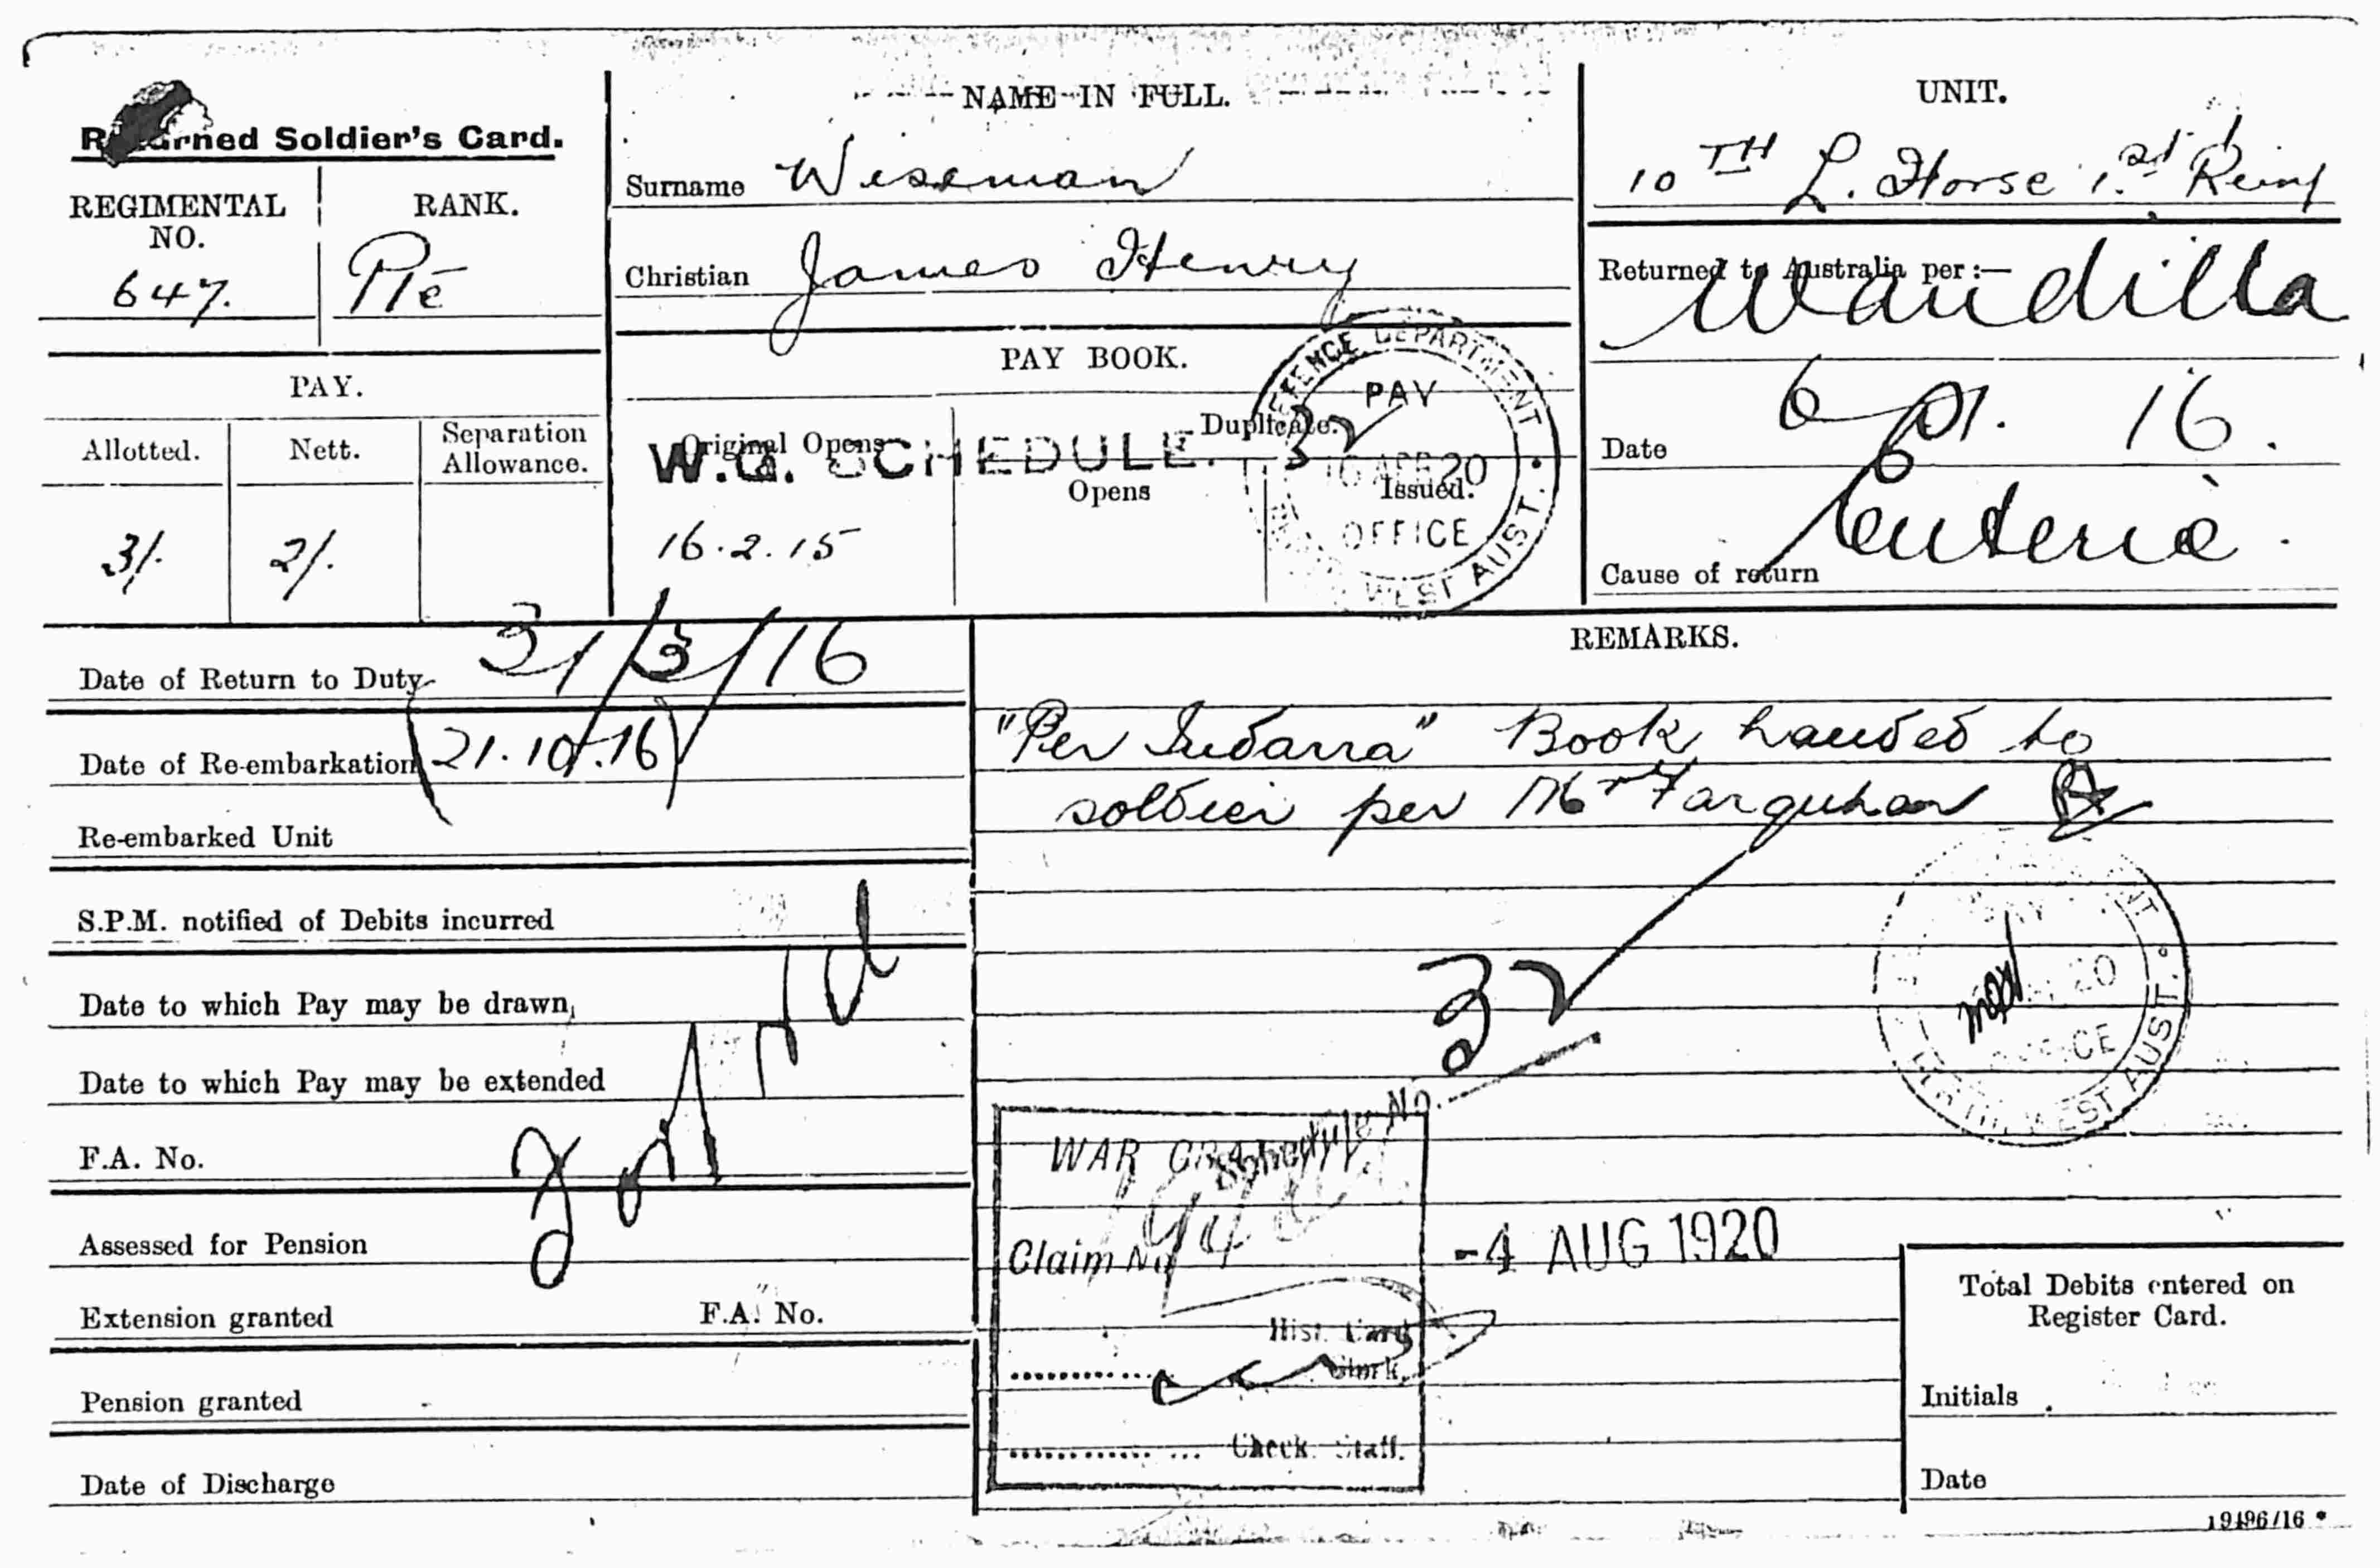 Returned Soldier's Card.
REGIMENTAL NO.
647.
RANK.
Pte
PAY.
Allotted.
Nett.
Separation Allowance.
3/.
2/.
NAME IN FULL.
Surname Wiseman
Christian James Henry
PAY BOOK.
Original Opens
Duplicate.
W.G. SCHEDULE. 32
Opens
Issued.
16.2.15
DEFENCE DEPARTMENT
PAY
16 APR 20
OFFICE
WEST AUST.
UNIT.
10TH L. Horse 1st Reinf
Returned to Australia per:—
Wandilla
Date 6 . 16.
Cause of return Enteric.
Date of Return to Duty 31/3/16
Date of Re-embarkation (21.10.16)
Re-embarked Unit
S.P.M. notified of Debits incurred
Date to which Pay may be drawn
Date to which Pay may be extended
F.A. No.
Assessed for Pension
Extension granted F.A. No.
Pension granted
Date of Discharge
REMARKS.
"Per Indarra" Book handed to
soldier per Mr Farquhar
32
20
WEST AUST.
No.
WAR GRATUITY.
Schedule
Claim No
-4 AUG 1920
Hist. Card
Clerk.
Check Staff.
Total Debits entered on
Register Card.
Initials
Date
19496/16